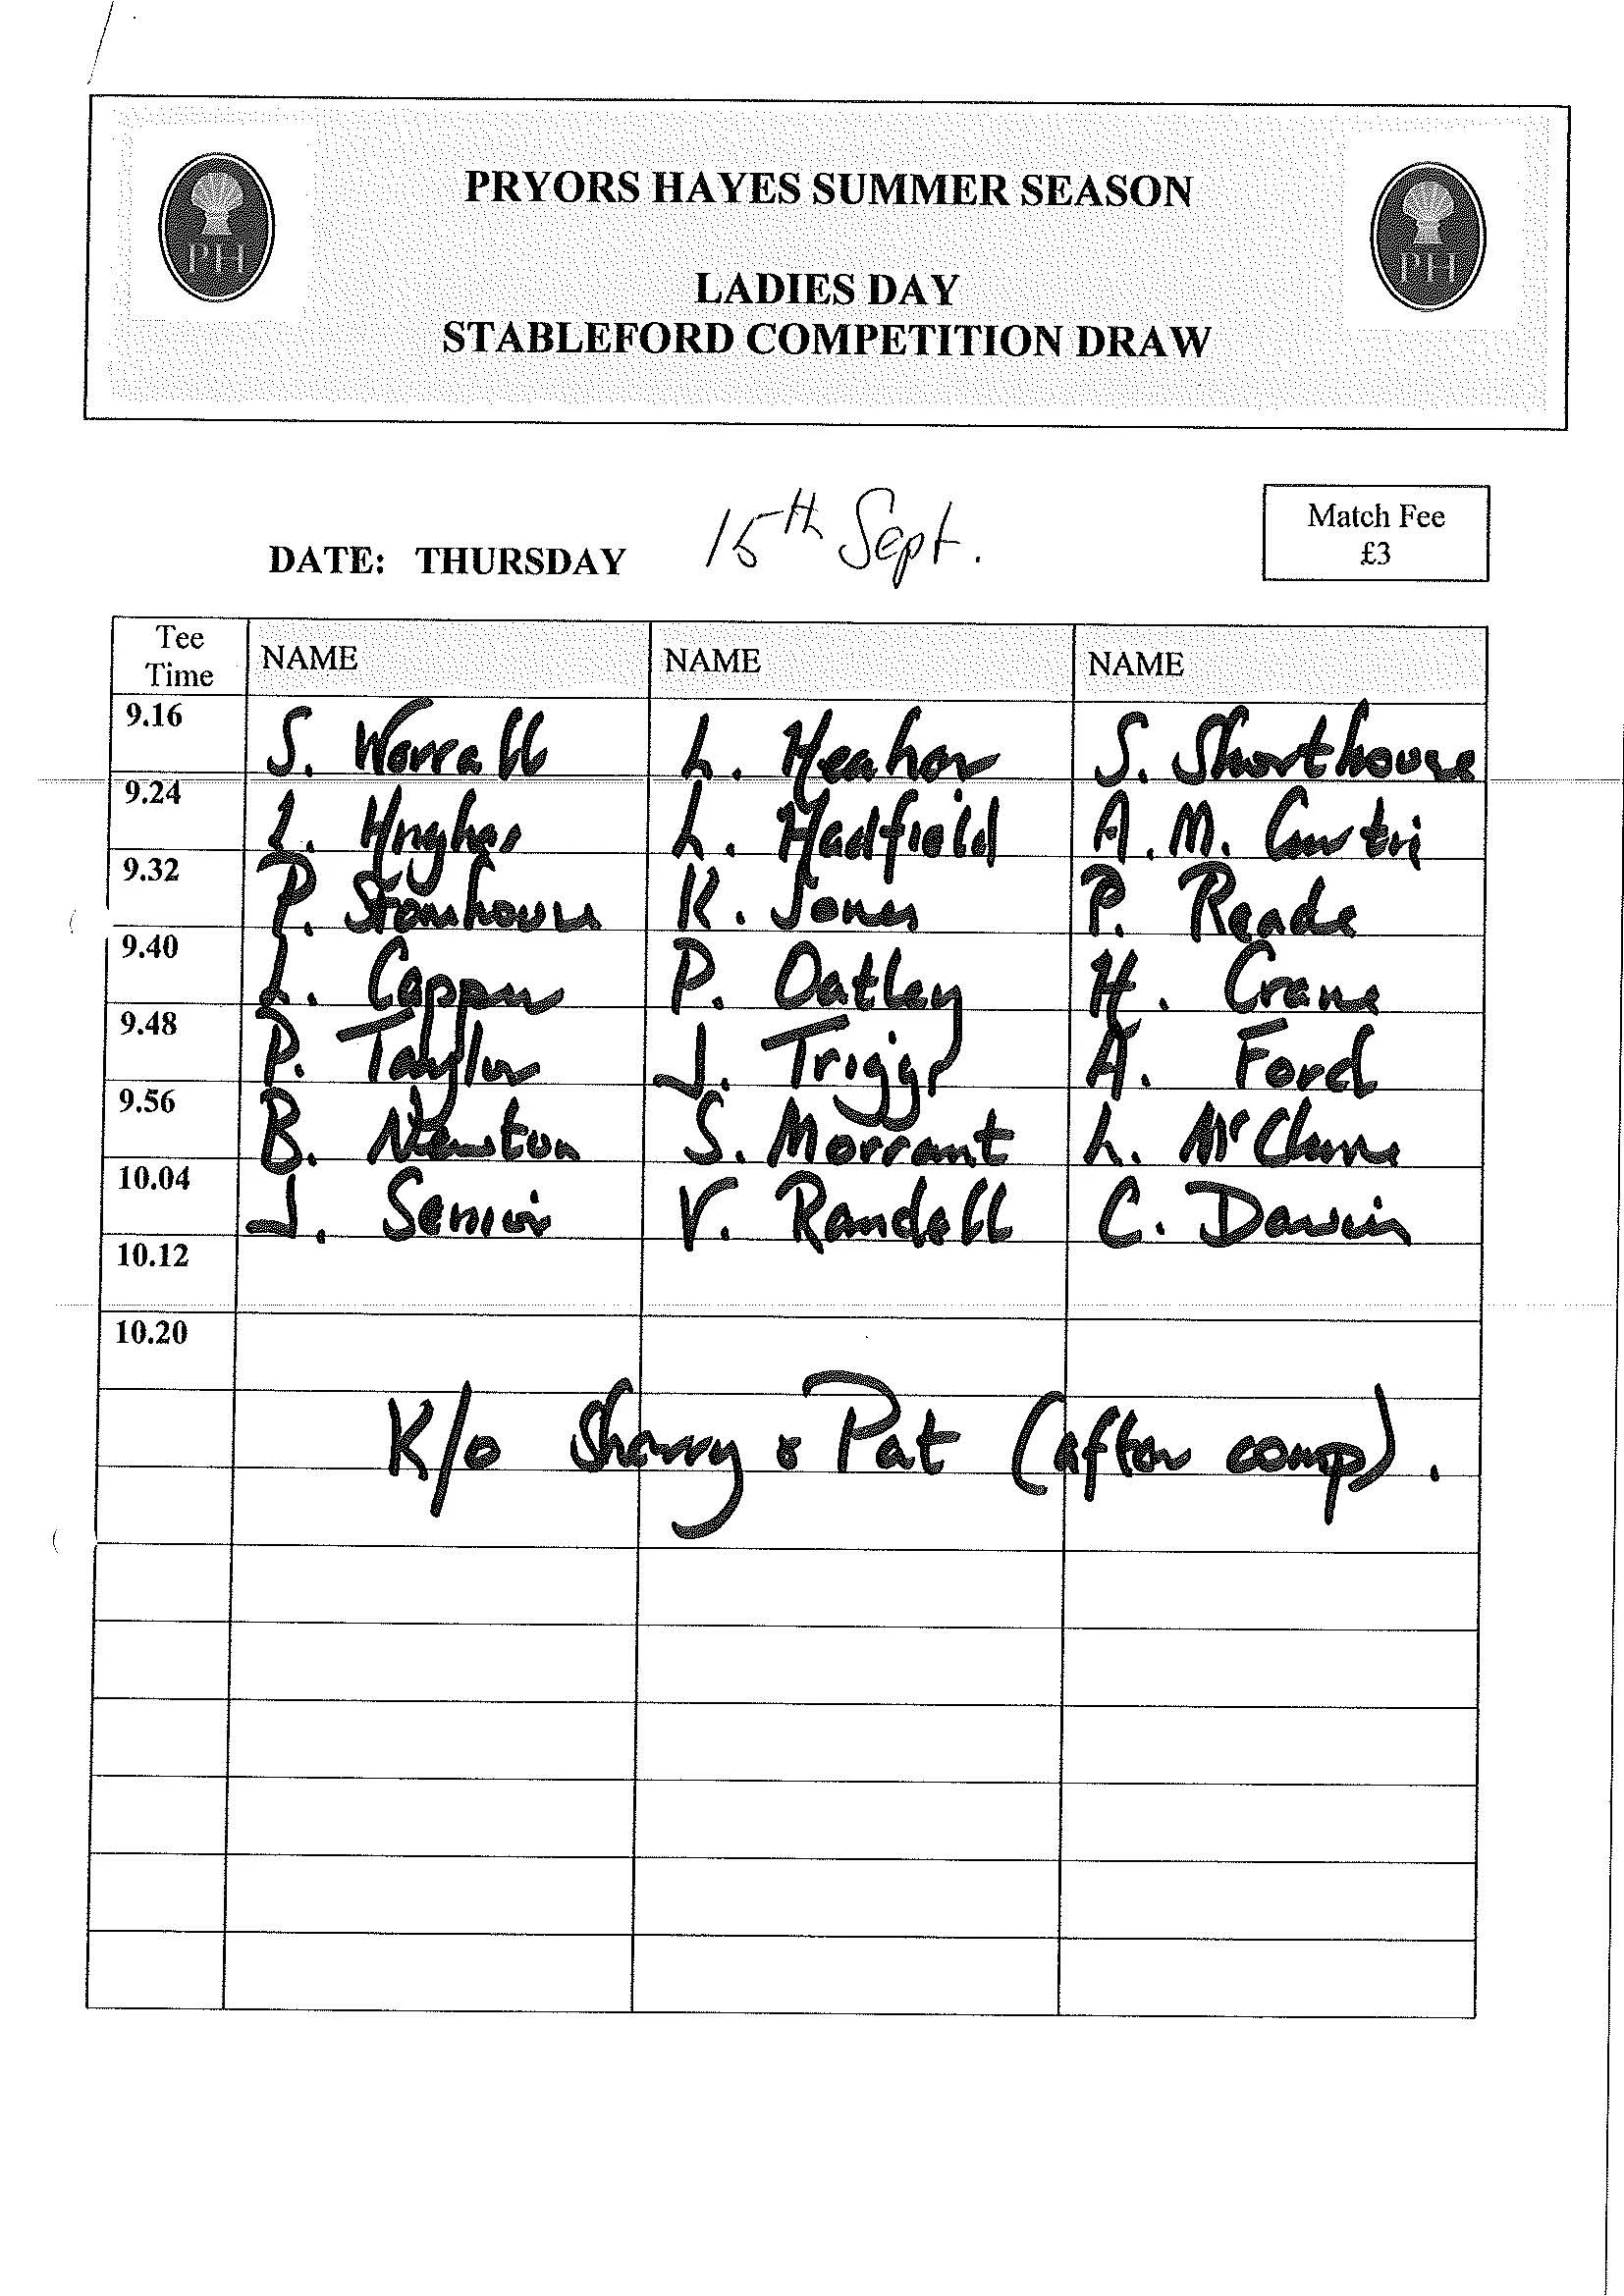 PRYORS HAYES SUMMER SEASON
PH
PH
LADIES DAY
STABLEFORD COMPETITION DRAW
DATE: THURSDAY 15th Sept.
Match Fee
£3
Tee
Time
NAME NAME NAME
9.16 S. Worrall L. Heahor S. Shorthouse
9.24 L. Hughes L. Hadfield A.M. Curtis
9.32 P. Stonhouse K. Jones P. Reade
9.40 L. Capper P. Oatley H. Crane
9.48 P. Taylor J. Triggs A. Ford
9.56 B. Newton S. Morrant L. McClune
10.04 J. Senior V. Randell C.
10.12
10.20
K/o Sharry & Pat (after comp).